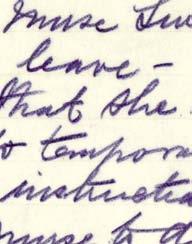 leave -
that she
to tempora
instructed
nurse to